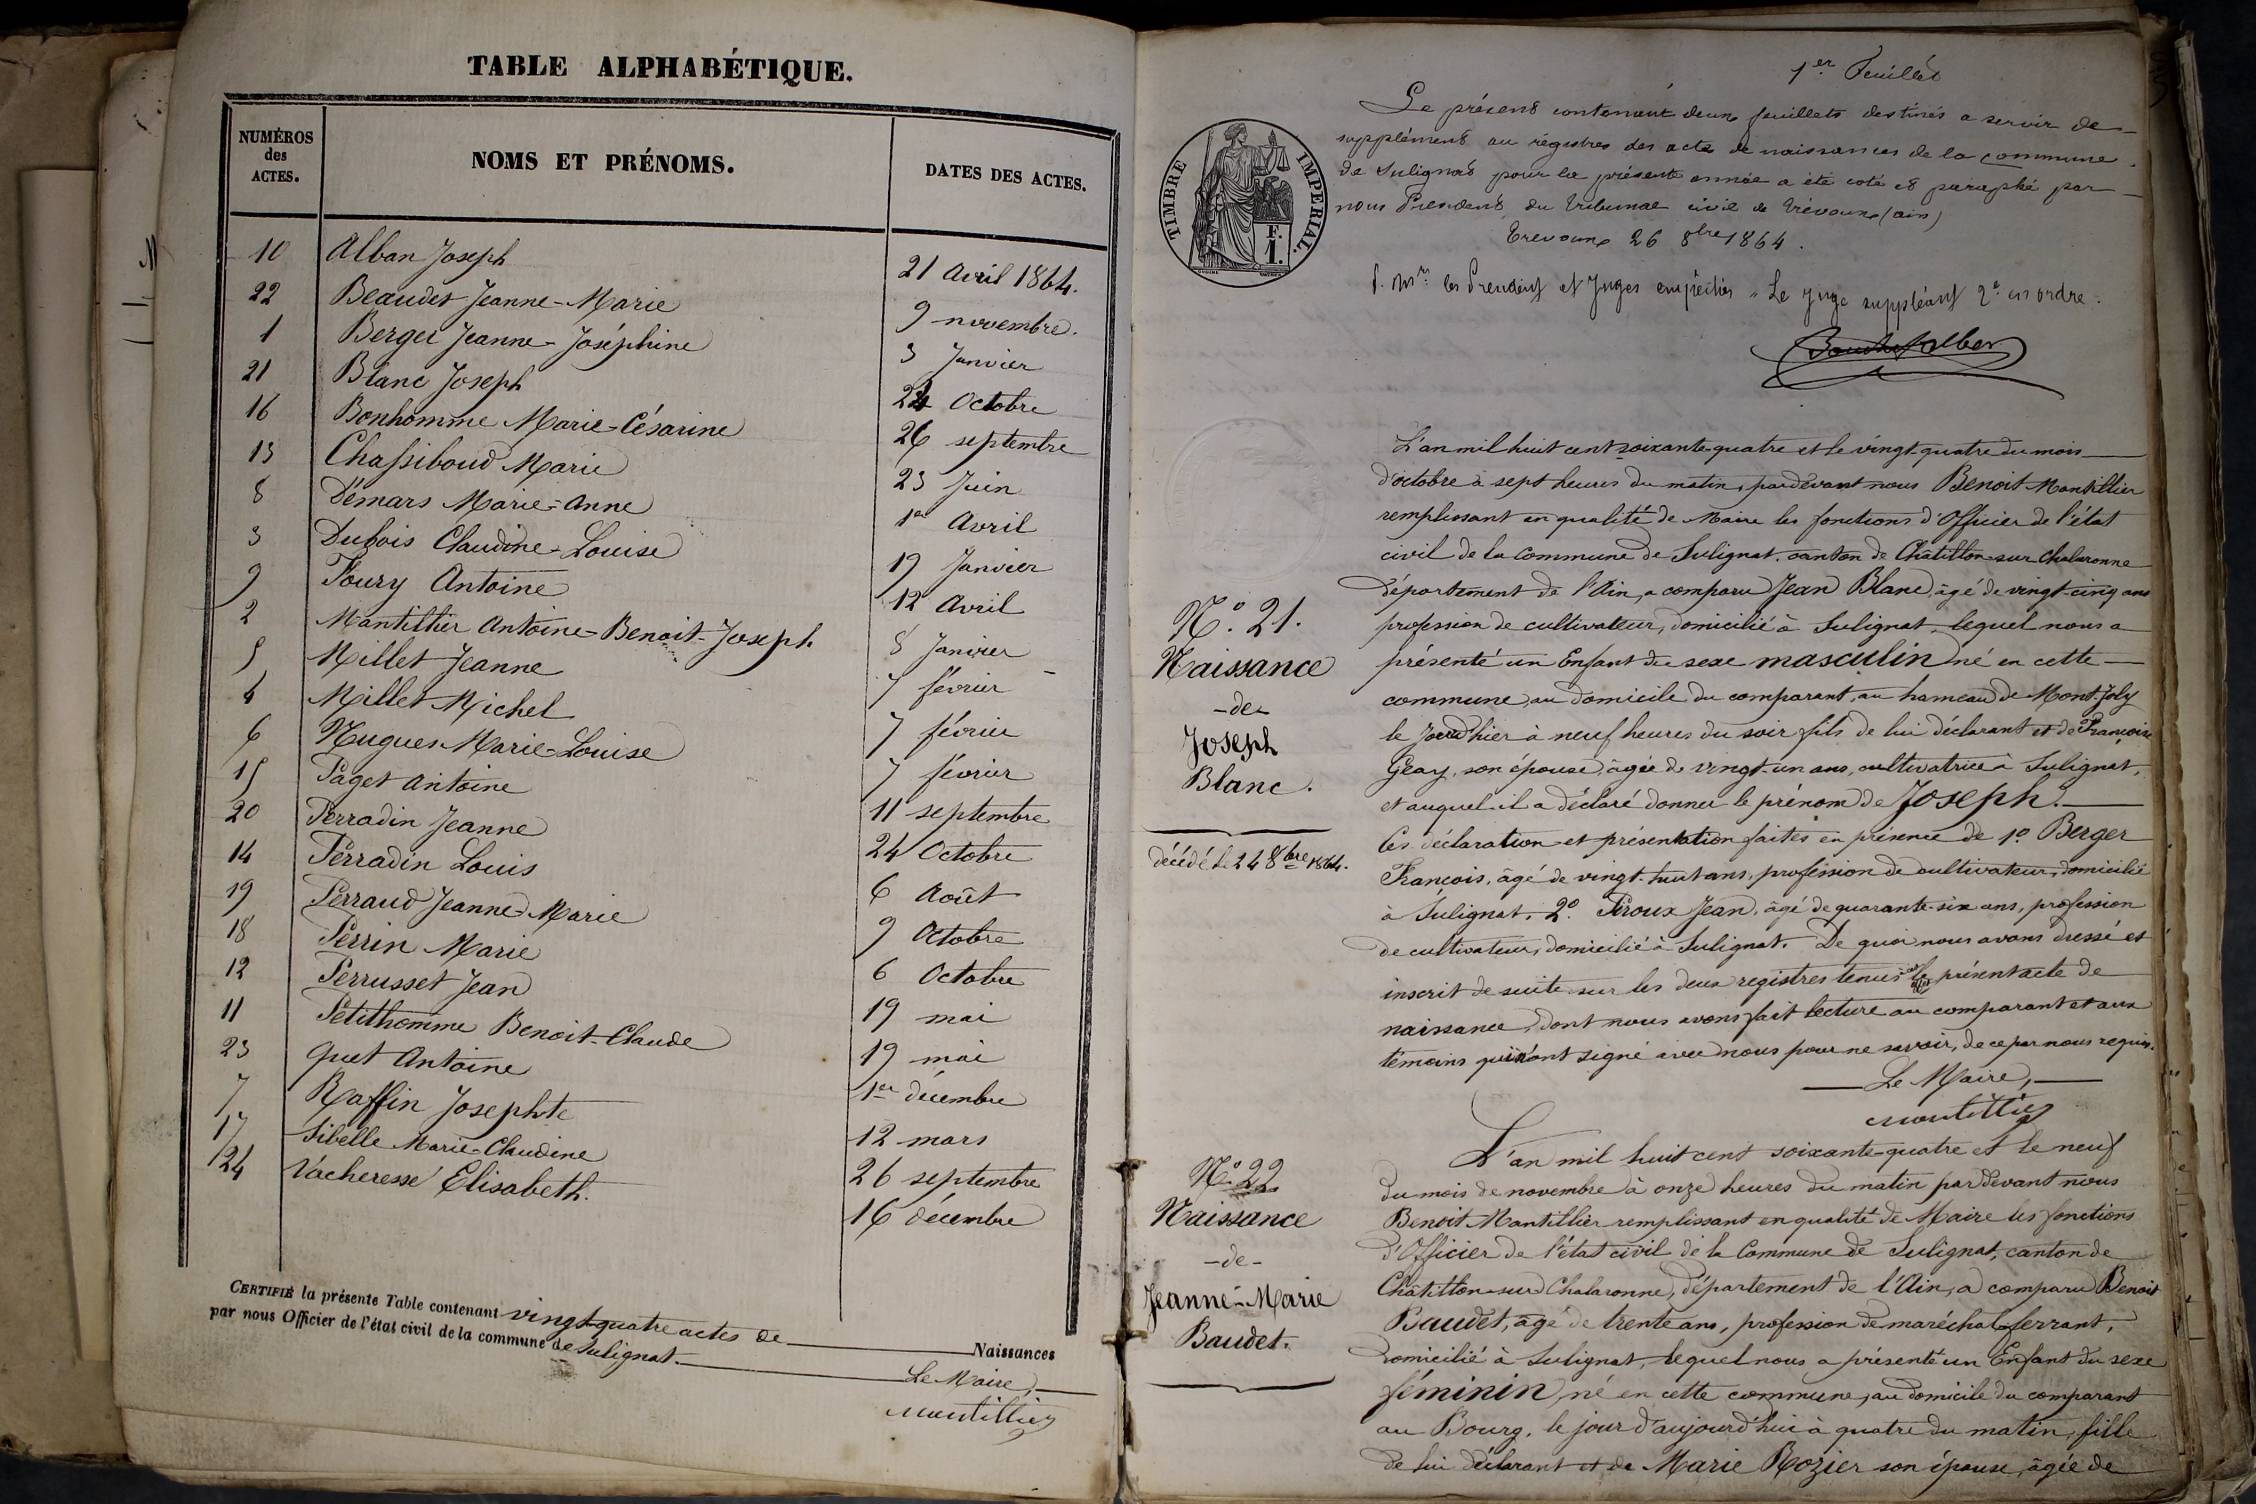 TABLE ALPHABÉTIQUE.
NUMÉROS des ACTES. NOMS ET PRÉNOMS. DATES DES ACTES.
10 Alban Joseph 21 Avril 1864.
22 Beaudet Jeanne-Marie 9 novembre.
1 Berger Jeanne-Joséphine 3 Janvier
21 Blanc Joseph 24 Octobre
16 Bonhomme Marie-Césarine 26 septembre
13 Chassiboud Marie 23 Juin
8 Démars Marie-Anne 1er Avril
3 Dubois Claudine-Louise 19 Janvier
9 Foury Antoine 12 Avril
2 Mantillier Antoine-Benoit-Joseph. 8 Janvier
5 Millet Jeanne 7 février
4 Millet Michel 7 février
6 Nugues Marie-Louise 7 février
15 Paget Antoine 11 septembre
20 Perradin Jeanne 24 Octobre
14 Perradin Louis 6 Août
19 Perraud Jeanne Marie 9 Octobre
18 Perrin Marie 6 Octobre
12 Perrusset Jean 19 mai
11 Petithomme Benoit-Claude 19 mai
23 Quet Antoine 1er décembre
7 Raffin Josephte 12 mars
17 Sibelle Marie-Claudine 26 septembre
24 Vacheresse Elisabeth. 16 décembre
CERTIFIÉ la présente Table contenant vingt quatre actes de Naissances
par nous Officier de l'état civil de la commune de Sulignat.
Le Maire,
Mantillier
1er Feuillet
Le présent contenant deux feuillets destinés a servir de
supplément au régistres des acte de naissances de la commune
de Sulignat pour la présente année a été coté et paraphé par
nous Président du Tribunal civil de Trévoux (ain)
Trevoux 26 8bre 1864.
TIMBRE IMPÉRIAL.
F.
1.
P. Mrs les President et Juges empêchés Le Juge suppléant 2e en ordre.
N.° 21.
Naissance
-de-
Joseph
Blanc.
décédé le 24 8bre 1864.
L'an mil huit cent soixante quatre et le vingt-quatre du mois
d'octobre à sept heures du matin, pardevant nous Benoit Mantillier
remplissant en qualité de Maire les fonctions d'Officier de l'état
civil de la Commune de Sulignat, canton de Châtillon-sur-Chalaronne
département de l'Ain, a comparu Jean Blanc, âgé de vingt-cinq ans
profession de cultivateur, domicilié à Sulignat, lequel nous a
présenté un Enfant du sexe masculin né en cette
commune, au domicile du comparant, au hameau de Mont-Joly
le jour d'hier à neuf heures du soir fils de lui déclarant et de Françoise
Geay, son épouse, âgée de vingt-un ans, cultivatrice à Sulignat,
et auquel il a déclaré donner le prénom de Joseph.
Ces déclaration et présentation faites en présence de 1° Berger
François, âgé de vingt-huit ans, profession de cultivateur, domicilié
à Sulignat, 2° Péroux Jean, âgé de quarante-six ans, profession
de cultivateur, domicilié à Sulignat. De quoi nous avons dressé et
inscrit de suite sur les deux registres tenus le présent acte de
naissance, dont nous avons fait lecture au comparant et aux
témoins qui n'ont signé avec nous pour ne savoir, de ce par nous requis.
Le Maire,
Mantillier
N.° 22
Naissance
-de-
Jeanne-Marie
Baudet.
L'an mil huit cent soixante-quatre et le neuf
du mois de novembre à onze heures du matin pardevant nous
Benoit Mantillier remplissant en qualité de Maire les fonctions
d'Officier de l'état civil de la Commune de Sulignat, canton de
Châtillon-sur-Chalaronne, département de l'Ain, a comparu Benoit
Baudet, âgé de trente ans, profession de maréchal ferrant,
domicilié à Sulignat, lequel nous a présenté un Enfant du sexe
féminin, né en cette commune, au domicile du comparant
au Bourg, le jour d'aujourd'hui à quatre du matin, fille
de lui déclarant et de Marie Rozier son épouse, âgée de